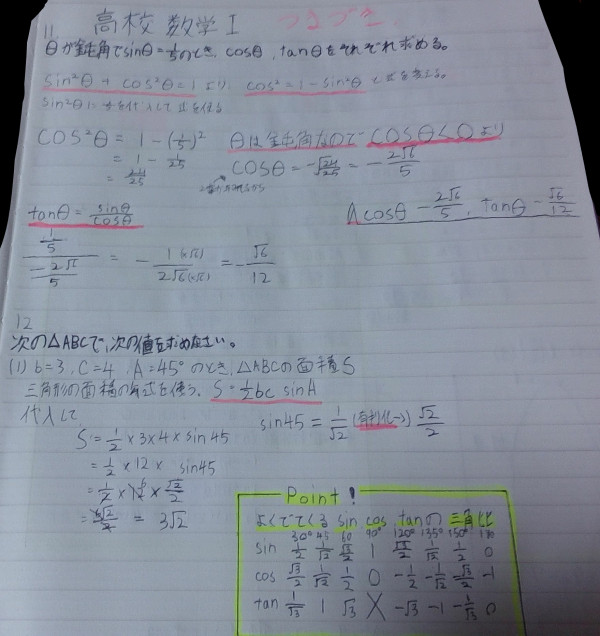 高校数学I つまづき
11
θが鈍角でsinθ=1/5のとき、cosθ、tanθをそれぞれ求める。
sin²θ + cos²θ = 1 より cos² = 1 - sin²θ と式を変える。
sin²θに 1/5を代入して式を作る
COS²θ = 1 - (1/5)² θは鈍角なので COSθ<0 より
= 1 - 1/25 COSθ = -√24/25 = - 2√6/5
= 24/25
tanθ = sinθ/cosθ A cosθ - 2√6/5, tanθ - √6/12
1/5 / - 2√6/5 = - 1(×√6)/2√6(×√6) = - √6/12
12
次の△ABCで、次の値を求めなさい。
(1) b=3, C=4, A=45° のとき、△ABCの面積S
三角形の面積の公式を使う、 S=1/2bc sinA
代入して sin45 = 1/√2 (有利化→) √2/2
S = 1/2 × 3 × 4 × sin45
= 1/2 × 12 × sin45
= 1/2 × 12 × √2/2
= 6√2/2 = 3√2
Point!
よくでてくる sin cos tanの 三角比
30° 45 60 90° 120° 135° 150° 180
sin 1/2 1/√2 √3/2 1 √3/2 1/√2 1/2 0
cos √3/2 1/√2 1/2 0 -1/2 -1/√2 -√3/2 -1
tan 1/√3 1 √3 X -√3 -1 -1/√3 0